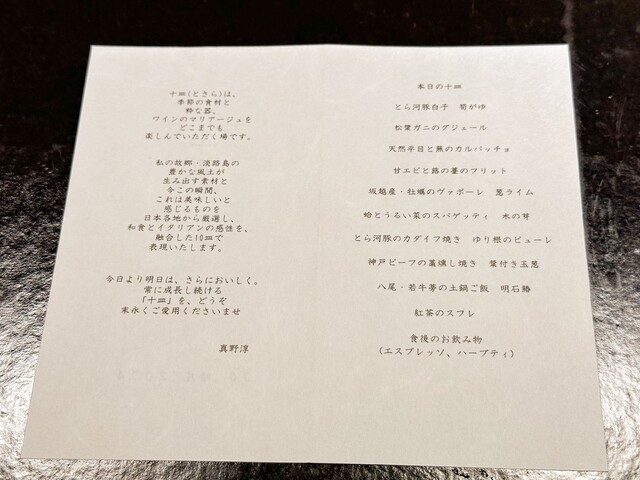 十皿(とさら)は、
季節の食材と
粋な器、
ワインのマリアージュを
どこまでも
楽しんでいただく場です。
私の故郷・淡路島の
豊かな風土が
生み出す素材と
今この瞬間、
これは美味しいと
感じるものを
日本各地から厳選し、
和食とイタリアンの感性を、
融合した10皿で
表現いたします。
今日より明日は、さらにおいしく。
常に成長し続ける
「十皿」を、どうぞ
末永くご愛用くださいませ
真野淳
本日の十皿
とら河豚白子 筍がゆ
松葉ガニのグジェール
天然平目と蕪のカルパッチョ
甘エビと蕗の薹のフリット
坂越産・牡蠣のヴァポーレ 葱ライム
蛤とうるい菜のスパゲッティ 木の芽
とら河豚のカダイフ焼き ゆり根のピューレ
神戸ビーフの藁燻し焼き 葉付き玉葱
八尾・若牛蒡の土鍋ご飯 明石鰆
紅茶のスフレ
食後のお飲み物
(エスプレッソ、ハーブティ)